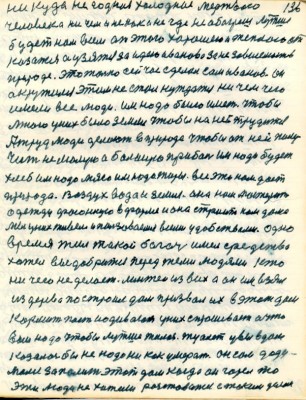 ни куда не годния холодное мертвого 136
человека ни чем и ни как не где не обогреш лутше
будет нам всем от этого хорошего и теплого от
казатся и уйти за идею иванова за независемость в
природе. Это только сейчас сделал сам иванов. он
окружил Этим не стал нуждатся ни чем чего
имели все люди. им надо было иметь чтобы
много у них было земли чтобы на ней трудится
А труд люди делают в природе чтобы от ней полу
чить не малую а большую прибыл им надо будет
хлеб им надо мясо им надо жиры. все это нам дает
природа. Воздух вода и земля. она нам
одежду фасонную в форме и она строит нам дома
мы у них живем и пользоваемся всеми удобствами. Одно
время жил такой богач имел средство
хотел выдобрится перед теми людями кто
ни чего не делает. и он их взял
из дерева построил дом призвал их в этот дом
кормит поит и одивает у них спрашивает а что
вам надо чтобы лутше жилось. увы вам
казалось бы не надо ни как умерать он сам доду-
мался запалил этот дом когда он горел то
Эти люди не хотели растоватся с таким делом